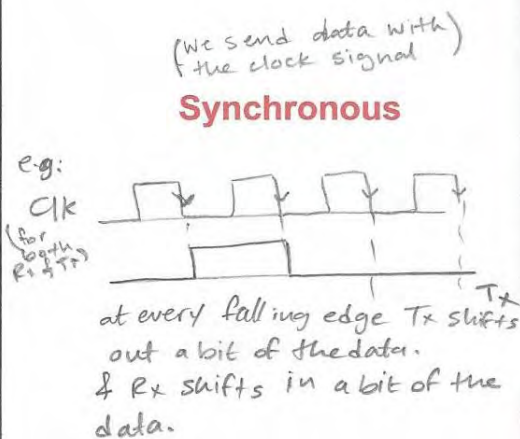 (we send data with)
(the clock signal
Synchronous
e.g:
Clk
(for
both
Rx & Tx)
Tx
at every falling edge Tx shifts
out a bit of the data.
& Rx shifts in a bit of the
data.